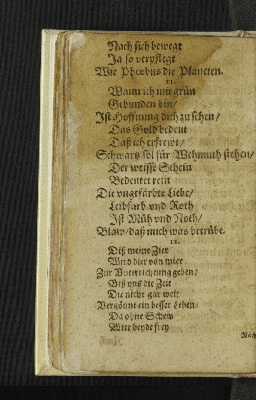 Nach sich bewegt
Ja so verpflegt
Wie Phœbus die Planeten.
11.
Wann ich mit grün
Gebunden bin/
Ist Hoffnung dich zu sehen/
Das Gold bedeut
Daß ich erfrewt/
Schwartz sol für Wehmuth stehen/
Der weisse Schein
Bedeutet rein
Die vngefärbte Liebe/
Leibfarb vnd Roth
Ist Müh vnd Noth/
Blaw/ daß mich was betrübe.
12.
Diß meine Zier
Wird dier von mier
Zur Vnterrichtung geben/
Biß vns die Zeit
Die nicht gar weit
Vergönnt ein besser Leben/
Da ohne Schew
Wier beyde frey
Nach